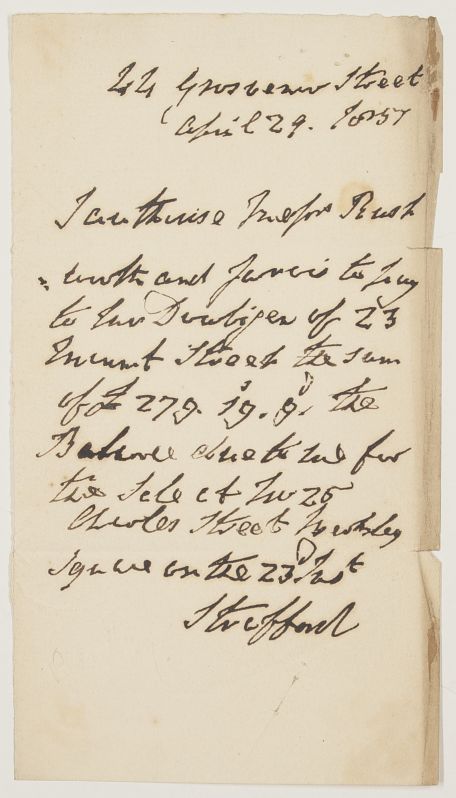 44 Grosvenor Street
April 29. 1857
I authorise Messrs Rush
worth and Jarvis to pay
to Mr Durlacher of 23
Mount Street the sum
of £ 279. 19. 9. the
Balance due to me for
the Sale at No 25
Charles Street Berkeley
Square on the 23d Inst
Strafford